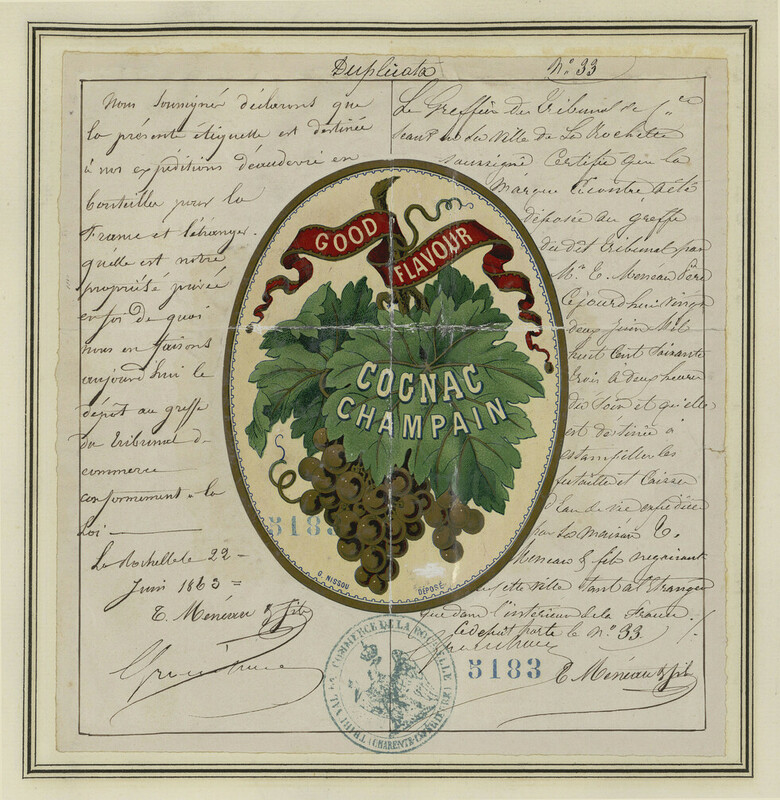 Duplicata
N.° 33
Nous soussigné déclarons que
la présente étiquette est destinée
à nos expéditions d'eaudevie en
bouteilles pour la
France et l'étranger.
qu'elle est notre
propriété privée
en foi de quoi
nous en faisons
aujourd'hui le
dépôt au greffe
du tribunal de
commerce
conformement a la
Loi
La Rochelle le 22
Juin 1863 =
E. Méneau & fils
Le Greffier du Tribunal de Cce
séant en la Ville de La Rochelle
soussigné Certifie que la
Marque Ci contre a été
déposée au greffe
du dit tribunal par
Mr. E. Meneau Père
Cejourd'hui vingt
deux Juin Mil
huit Cent Soixante
trois a deux heures
du Soir et qu'elle
est destinée à
estampiller les
futailles et Caisses
d'Eau de vie expédiées
par La Maison E.
Meneau & fils négociants
en cette Ville tant a l'Etranger
que dans l'intérieur de la France.
Le dépôt porte le N.° 33
E. Méneau & fils
GOOD
FLAVOUR
COGNAC
CHAMPAIN
5183
G. NISSOU
DÉPOSÉ
TRIBUNAL DE COMMERCE DE LA ROCHELLE
(CHARENTE-INFÉRIEURE)
5183